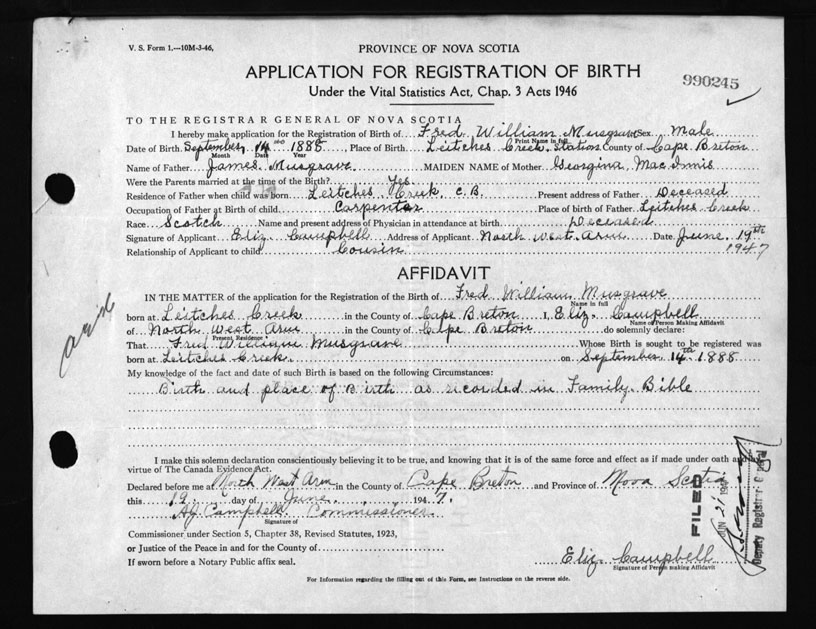 V. S. Form 1.—10M-3-46,
PROVINCE OF NOVA SCOTIA
APPLICATION FOR REGISTRATION OF BIRTH
990245
Under the Vital Statistics Act, Chap. 3 Acts 1946
TO THE REGISTRAR GENERAL OF NOVA SCOTIA
I hereby make application for the Registration of Birth of Fred William Musgrave Sex Male
Print Name in full
Date of Birth September 14 1888 Place of Birth Leitches Creek Station County of Cape Breton
Month Date Year
Name of Father James Musgrave MAIDEN NAME of Mother Georgina MacInnis
Were the Parents married at the time of the Birth? Yes
Residence of Father when child was born Leitches Creek C.B. Present address of Father Deceased
Occupation of Father at Birth of child Carpenter Place of birth of Father Leitches Creek
Race Scotch Name and present address of Physician in attendance at birth Deceased
Signature of Applicant Eliz. Campbell Address of Applicant North West Arm Date June 19th
Relationship of Applicant to child Cousin 1947
AFFIDAVIT
IN THE MATTER of the application for the Registration of the Birth of Fred William Musgrave
Name in full
born at Leitches Creek in the County of Cape Breton I, Eliz. Campbell
Name of Person Making Affidavit
of North West Arm in the County of Cape Breton do solemnly declare:
Present Residence
That Fred William Musgrave Whose Birth is sought to be registered was
born at Leitches Creek on September 14th 1888
My knowledge of the fact and date of such Birth is based on the following Circumstances:
Birth and place of Birth as recorded in Family Bible
I make this solemn declaration conscientiously believing it to be true, and knowing that it is of the same force and effect as if made under oath and by
virtue of The Canada Evidence Act.
Declared before me at North West Arm in the County of Cape Breton and Province of Nova Scotia
this 19 day of June 1947.
A J Campbell Commissioner
Signature of
Commissioner under Section 5, Chapter 38, Revised Statutes, 1923,
or Justice of the Peace in and for the County of
If sworn before a Notary Public affix seal.
Eliz. Campbell
Signature of Person making Affidavit
For Information regarding the filling out of this Form, see Instructions on the reverse side.
FILED
JUN 21
Deputy Registrar General